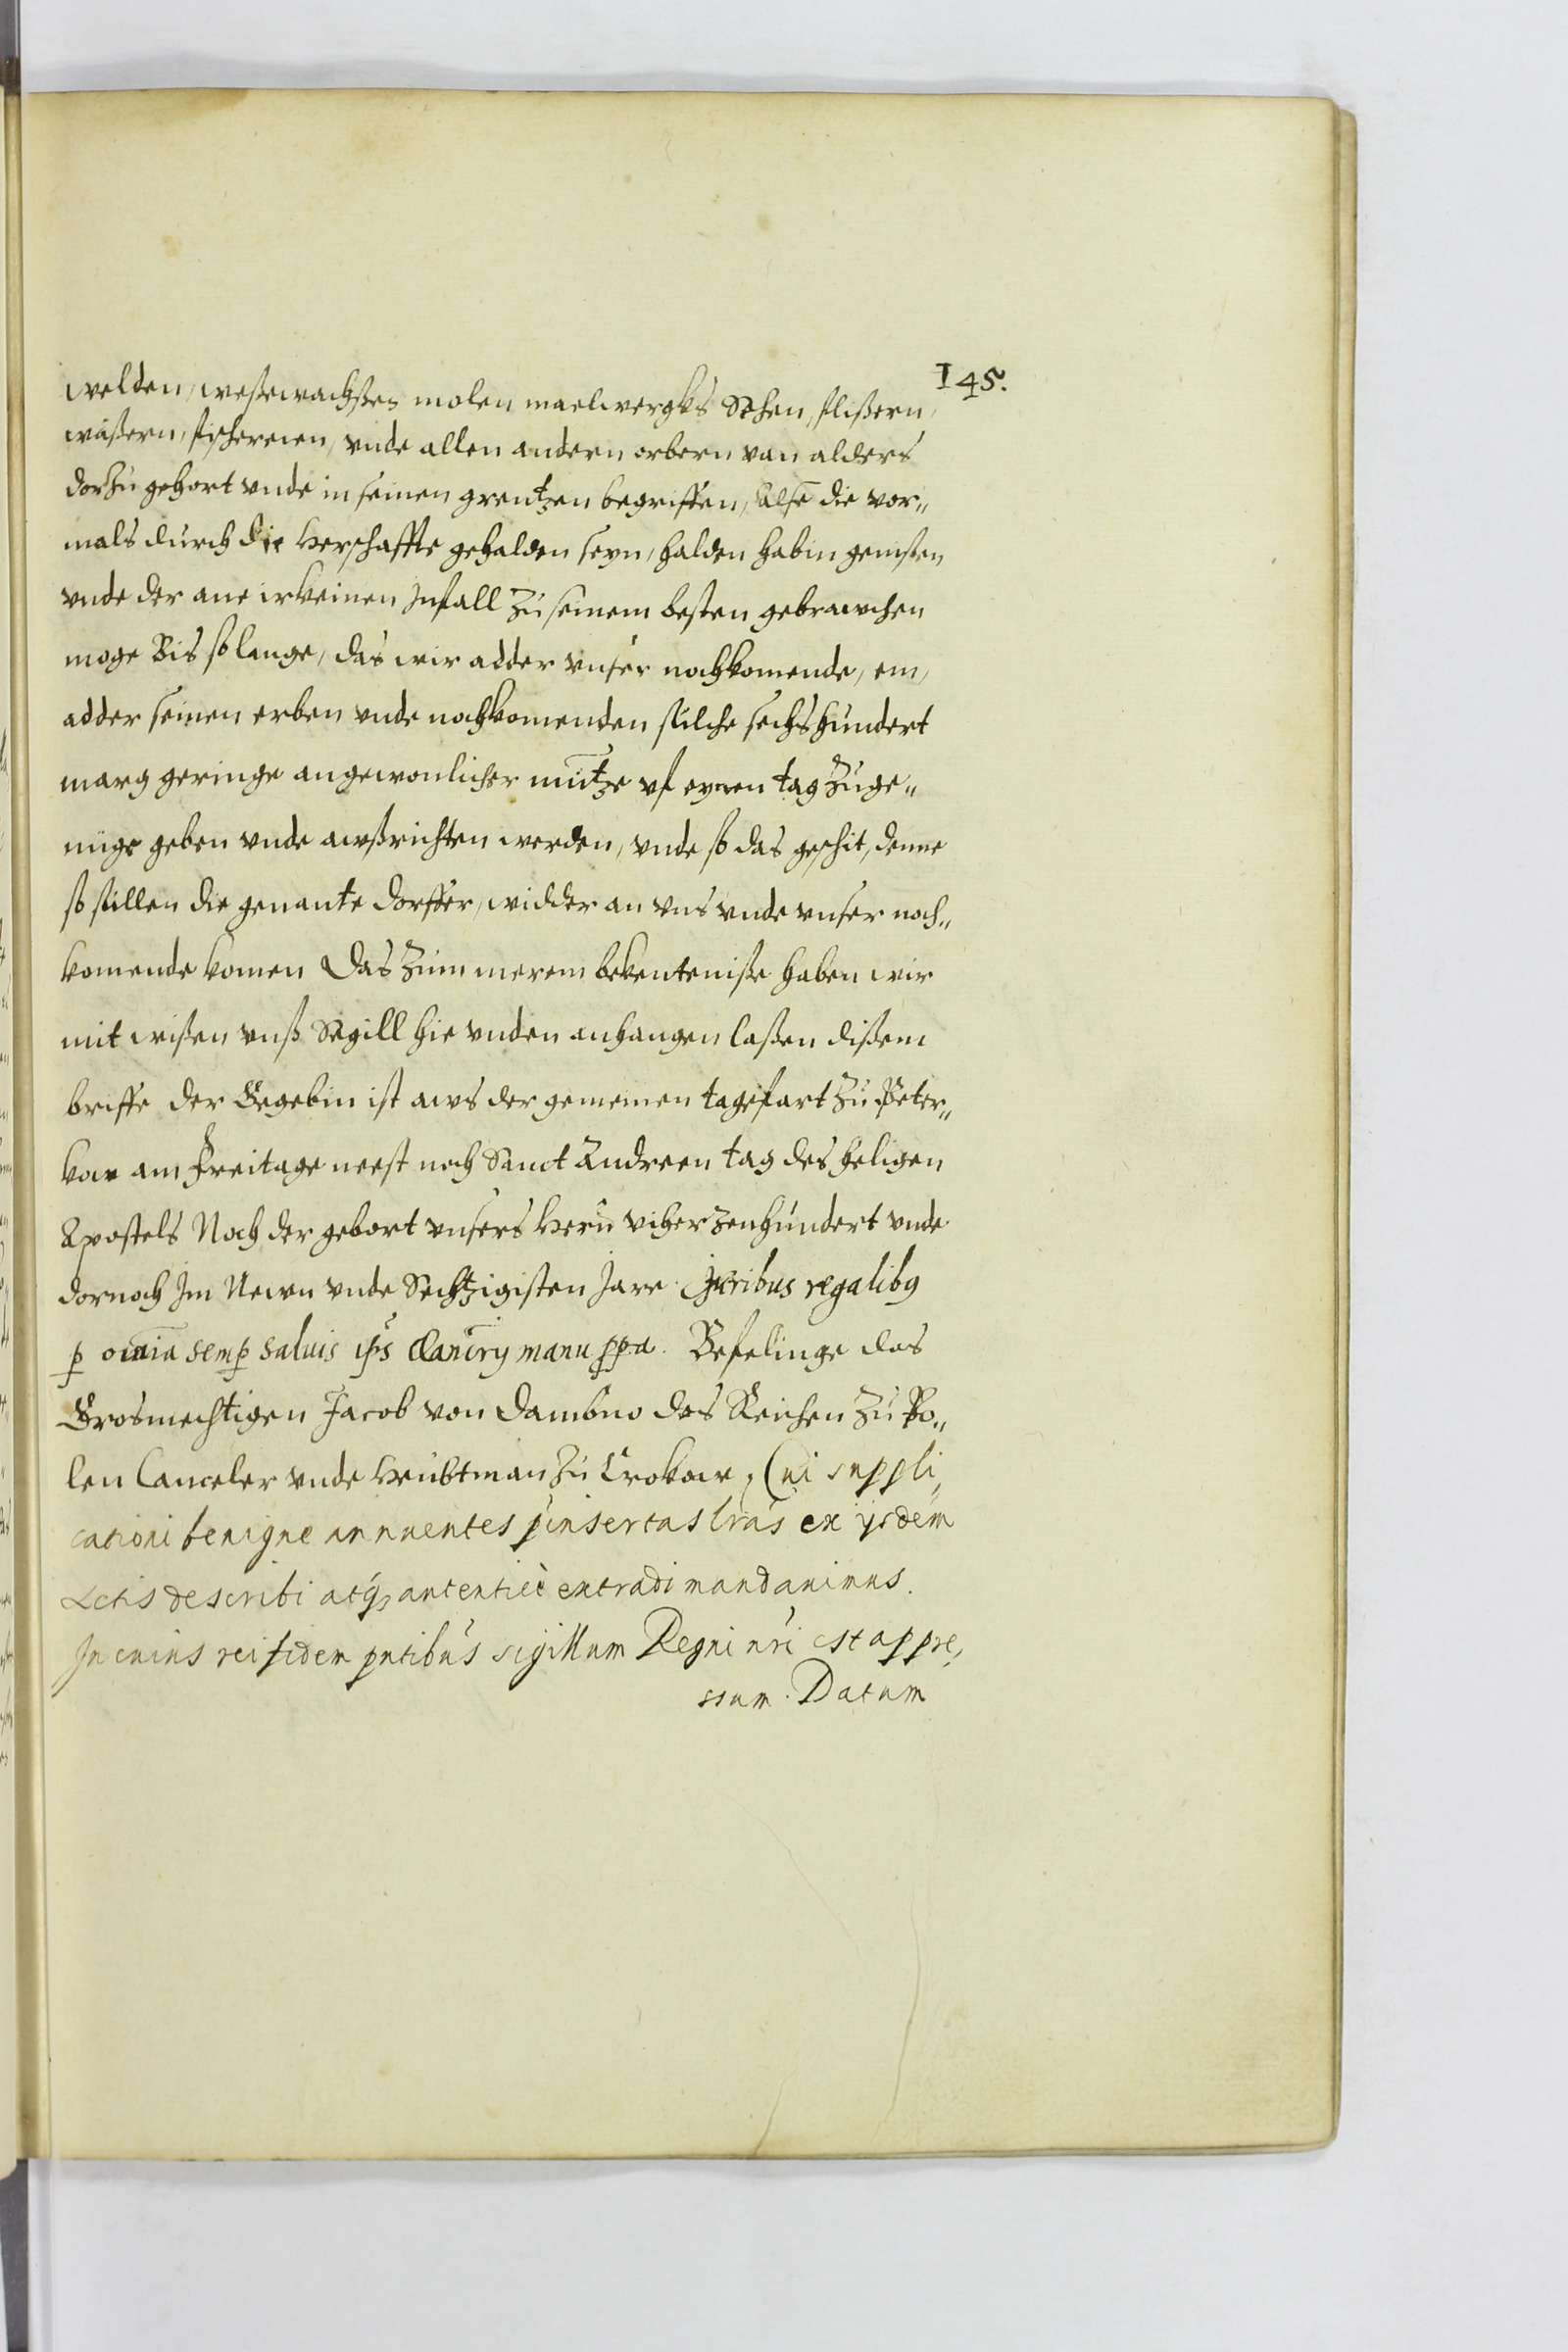 145.
welden, weßewachßes molen maelwergks Sehen, flißern,
waßern, fischereien, vnde allen andern orbern van alders
dorzu gehort vnde in seinen grentzen begriffen, Alse die vor„
mals durch die Herschaffte gehalden seyn, halden habin genißen
vnde der ane irkeinen Infall zu seinem besten gebrawchen
moge Bis so lange, das wir adder vnser nochkomende, em,
adder seinen erben vnde nochkomenden sulche sechs hundert
marg geringe an gewonlicher mutze vf eynen tag zu ge„
nuge geben vnde awßrichten werden, vnde so das geschit, denne
so sullen die genante dorffer, widder an vns vnde vnser noch„
komende komen Das zum merem bekenteniße haben wir
mit wißen vnß Segill hie vnden anhangen laßen dißem
briffe der Gegebin ist aws der gemeinen tagefart zu Peter„
kow am Freitage neest noch Sanct Andreen tag des heligen
Apostels Noch der gebort vnsers Hern viherzenhundert vnde
dornoch Im Newn vnde Sechtzigisten Jare. Juribus regalibꝯ
ꝑ omnia semꝑ saluis ip̄s Cancry manu ppa. Befelinge das
Grosmechtigen Jacob von Dambno des Reichen zu Po„
len Canceler vnde Heubtman zu Crokow, Cui suppli,
cationi benigne annuentes p̄insertas lr̄as ex ijsdem
Actis describi atq, autenticè extradi mandauimus.
In cuius rei fidem pn̄tibus sigillum Regni nr̄i est appre,
ssum. Datum